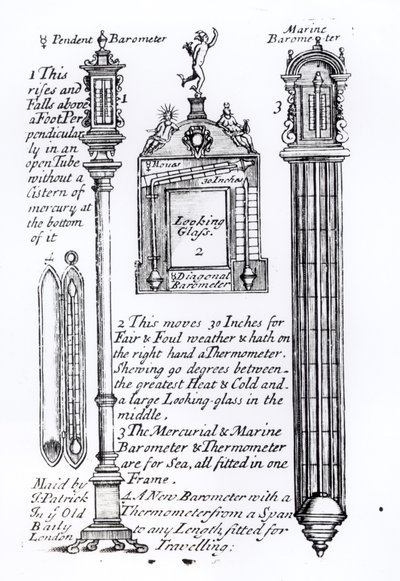 ☿ Pendent Barometer
Marine
Barometer
1 This
rises and
Falls above
a Foot Per
pendicular
ly in an
open Tube
without a
Cistern of
mercury at
the bottom
of it
1
3
☿ Moves
30 Inches
Looking
Glass.
2
☿ Diagonal
Barometer
4
2 This moves 30 Inches for
Fair & Foul weather & hath on
the right hand a Thermometer.
Shewing 90 degrees between
the greatest Heat & Cold and
a large Looking-glass in the
middle.
3 The Mercurial & Marine
Barometer & Thermometer
are for Sea, all fitted in one
Frame.
4 A New Barometer with a
Thermometer from a Span
to any Length, fitted for
Travelling:
Maid by
J: Patrick
In ye Old
Baily
London